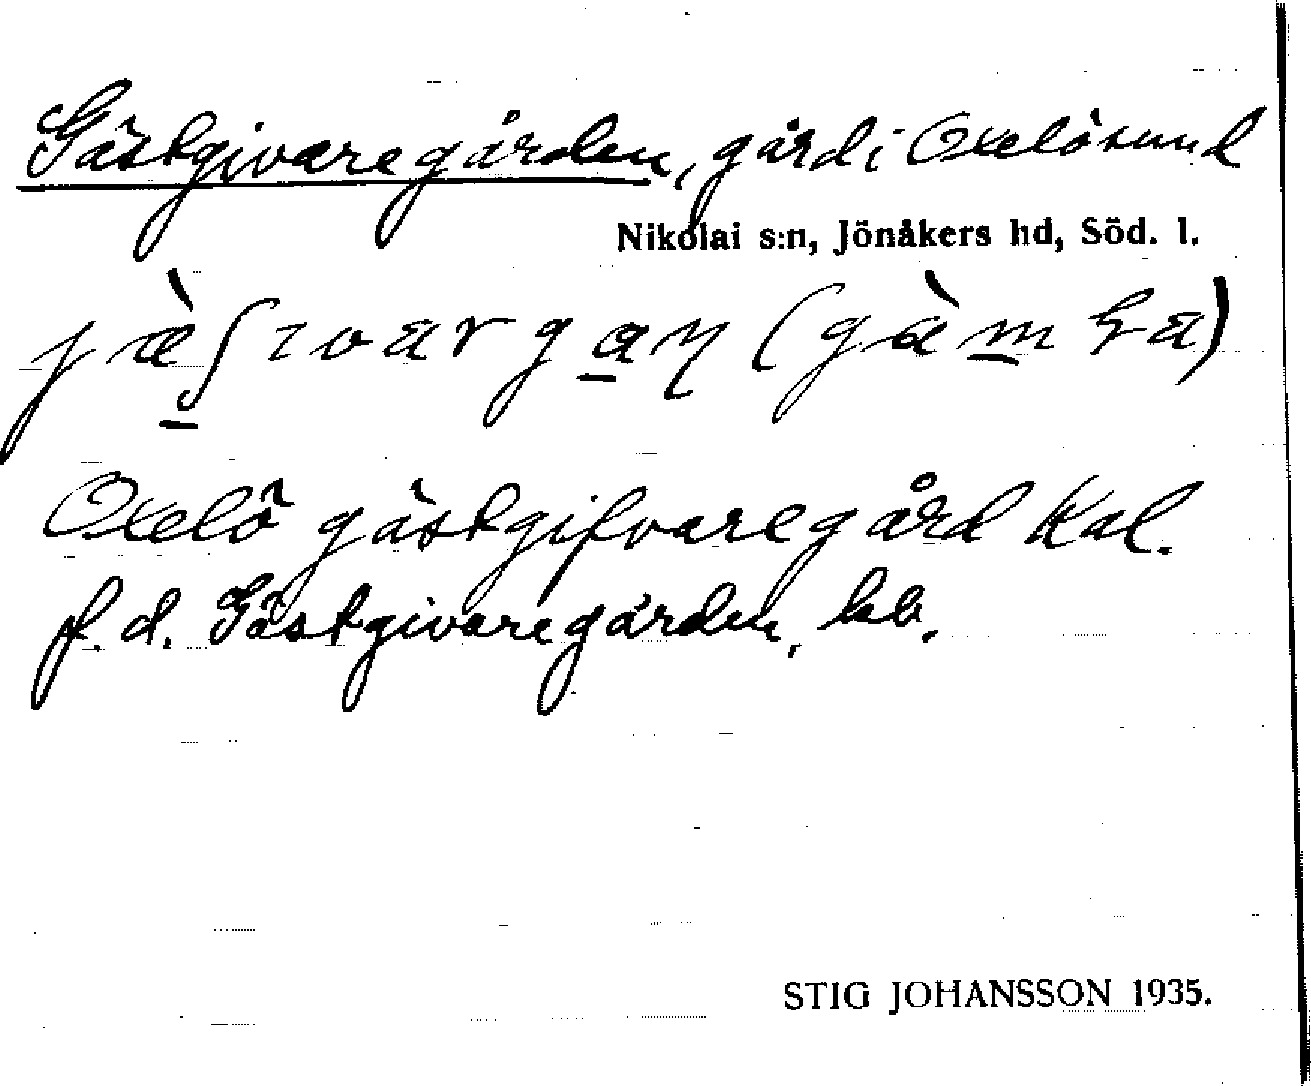 Gästgivaregården, gård i Oxelösund
Nikolai s:n, Jönåkers hd, Söd. l.
Oxelö gästgifvaregård Kal.
f. d. Gästgivaregården, kb.
STIG JOHANSSON 1935.